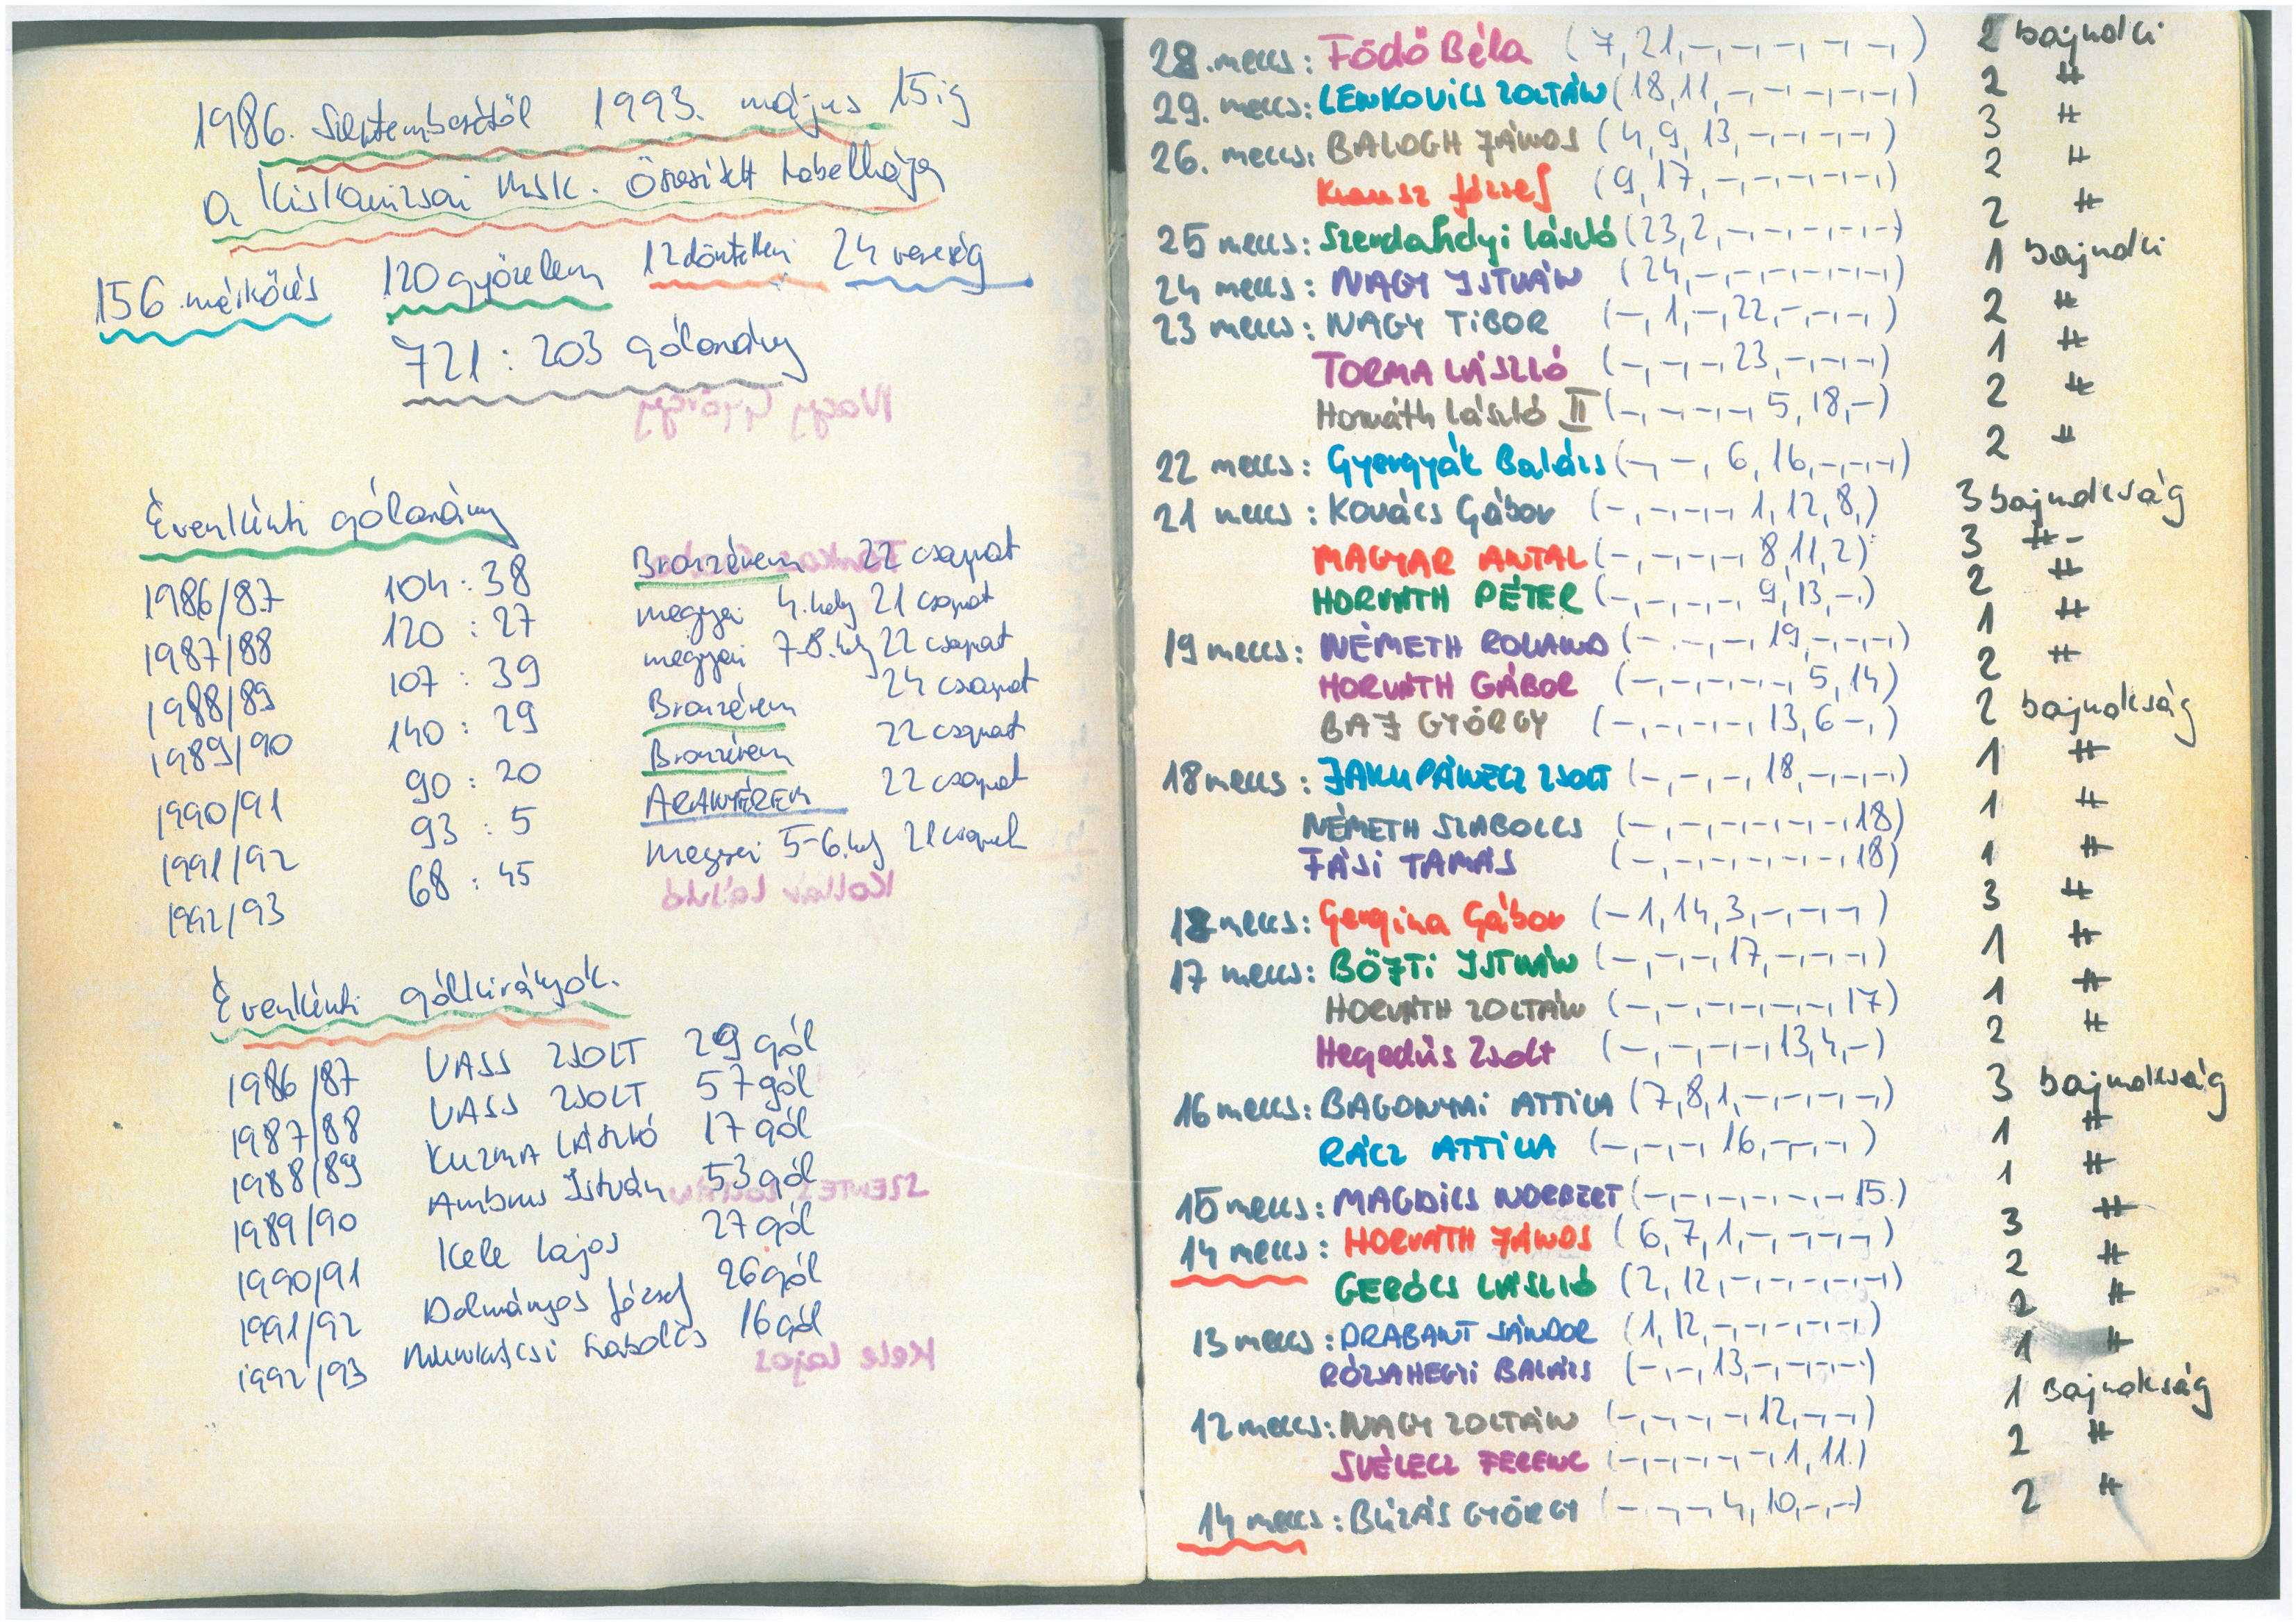 1986. Szeptemberétől 1993. május 15ig
a Kiskanizsai MSK. Összesített tabellája
156 mérkőzés 120 győzelem 12 döntetlen 24 vereség
721 : 203 gólarány
Nagy György
Évenkénti gólarány
1986/87 104 : 38 Bronzérem 22 csapat
1987/88 120 : 27 megyei 4. hely 21 csapat
1988/89 107 : 39 megyei 7-8. hely 22 csapat
1989/90 140 : 29 Bronzérem 24 csapat
1990/91 90 : 20 Bronzérem 22 csapat
1991/92 93 : 5 ARANYÉREM 22 csapat
1992/93 68 : 45 Megyei 5-6. hely 21 csapat
Kollár László
Évenkénti gólkirályok.
1986/87 VASS ZSOLT 29 gól
1987/88 VASS ZSOLT 57 gól
1988/89 KUZMA LÁSZLÓ 17 gól
1989/90 Ambrus István 53 gól
SZENTES ZOLTÁN
1990/91 Kele Lajos 27 gól
1991/92 Dolmányos József 26 gól
1992/93 Munkácsi Szabolcs 16 gól
Kele Lajos
28. meccs: FÖDŐ Béla (7, 21, -, -, -, -, -, -,) 2 bajnoki
29. meccs: LENKOVICS ZOLTÁN (18, 11, -, -, -, -, -, -,) 2 "
26. meccs: BALOGH JÁNOS (4, 9, 13, -, -, -, -, -,) 3 "
Krausz József (9, 17, -, -, -, -, -, -,) 2 "
25 meccs: Szerdahelyi László (23, 2, -, -, -, -, -, -,) 2 "
24 meccs: NAGY ISTVÁN (24, -, -, -, -, -, -, -,) 1 bajnoki
23 meccs: NAGY TIBOR (-, 1, -, 22, -, -, -,) 2 "
TORMA LÁSZLÓ (-, -, -, 23, -, -, -,) 1 "
Horváth László II (-, -, -, -, 5, 18, -) 2 "
22 meccs: Gyergyák Balázs (-, -, 6, 16, -, -, -,) 2 "
21 meccs: Kovács Gábor (-, -, -, -, 1, 12, 8,) 3 bajnokság
MAGYAR ANTAL (-, -, -, -, 8, 11, 2) 3 " -
HORVÁTH PÉTER (-, -, -, -, 9, 13, -,) 2 "
19 meccs: NÉMETH ROLAND (-, -, -, 19, -, -, -,) 1 "
HORVÁTH GÁBOR (-, -, -, -, -, 5, 14) 2 "
BAJ GYÖRGY (-, -, -, -, 13, 6 -,) 2 bajnokság
18 meccs: JAKUPÁNECZ ZSOLT (-, -, -, 18, -, -, -,) 1 "
NÉMETH SZABOLCS (-, -, -, -, -, -, 18) 1 "
FÁSI TAMÁS (-, -, -, -, -, -, 18) 1 "
18 meccs: Gergina Gábor (- 1, 14, 3, -, -, -,) 3 "
17 meccs: BÖJTI ISTVÁN (-, -, -, 17, -, -, -,) 1 "
HORVÁTH ZOLTÁN (-, -, -, -, -, -, 17) 1 "
Hegedűs Zsolt (-, -, -, -, 13, 4, -) 2 "
16 meccs: BAGONYAI ATTILA (7, 8, 1, -, -, -, -,) 3 bajnokság
RÁCZ ATTILA (-, -, -, 16, -, -, -,) 1 "
15 meccs: MAGDICS NORBERT (-, -, -, -, -, -, 15.) 1 "
14 meccs: HORVÁTH JÁNOS (6, 7, 1, -, -, -, -,) 3 "
GERÓCS LÁSZLÓ (2, 12, -, -, -, -, -,) 2 "
13 meccs: DRABANT SÁNDOR (1, 12, -, -, -, -, -,) 2 "
RÓZSAHEGYI BALÁZS (-, -, 13, -, -, -, -,) 1 "
12 meccs: NAGY ZOLTÁN (-, -, -, -, 12, -, -,) 1 Bajnokság
SVÉLECZ FERENC (-, -, -, -, -, 1, 11.) 2 "
14 meccs: BÚZÁS GYÖRGY (-, -, -, 4, 10, -, -) 2 "